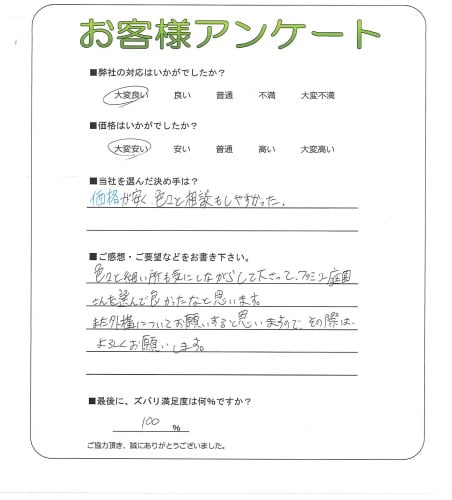 お客様アンケート
■弊社の対応はいかがでしたか？
大変良い 良い 普通 不満 大変不満
■価格はいかがでしたか？
大変安い 安い 普通 高い 大変高い
■当社を選んだ決め手は？
価格が安く、色々と相談もしやすかった。
■ご感想・ご要望などをお書き下さい。
色々と細い所も気にしながらして下さって、ファミリー庭園
さんを選んで良かったなと思います。
また外構についてお願いすると思いますので、その際は、
よろしくお願いします。
■最後に、ズバリ満足度は何％ですか？
100 ％
ご協力頂き、誠にありがとうございました。